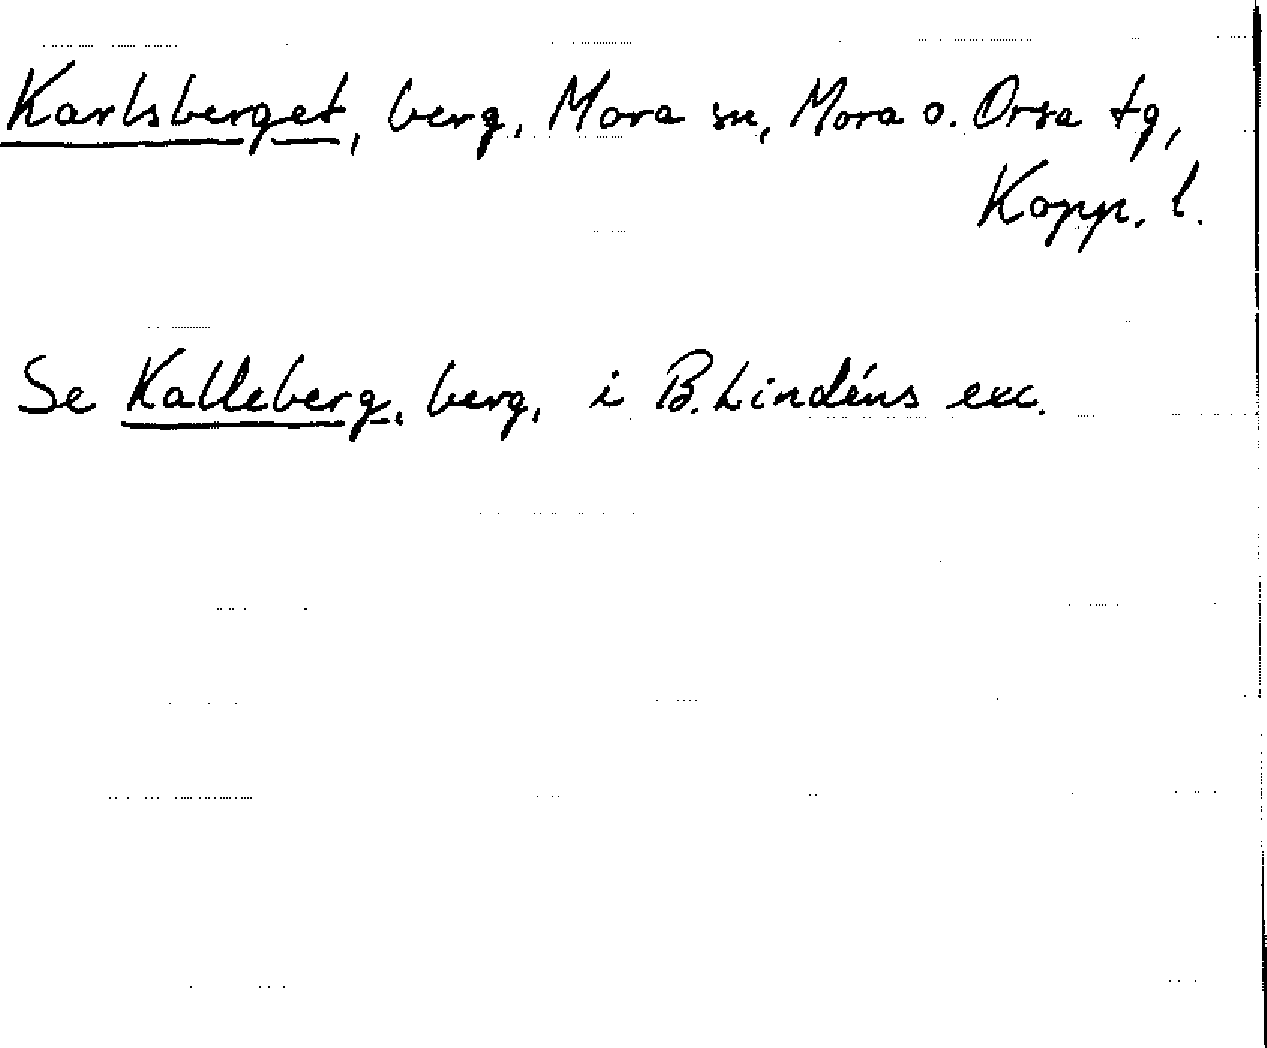 Karlsberget, berg, Mora sn, Mora o. Orsa tg,
Kopp. l.
Se Kalleberg, berg, i B. Lindéns exc.